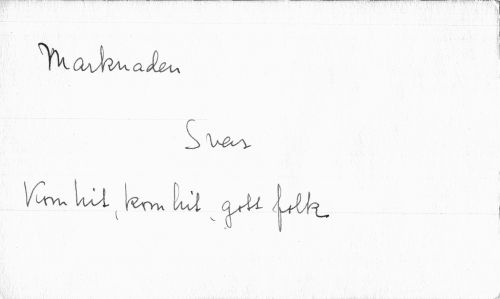 Marknaden
Svens
Kom hit, kom hit, gott folk